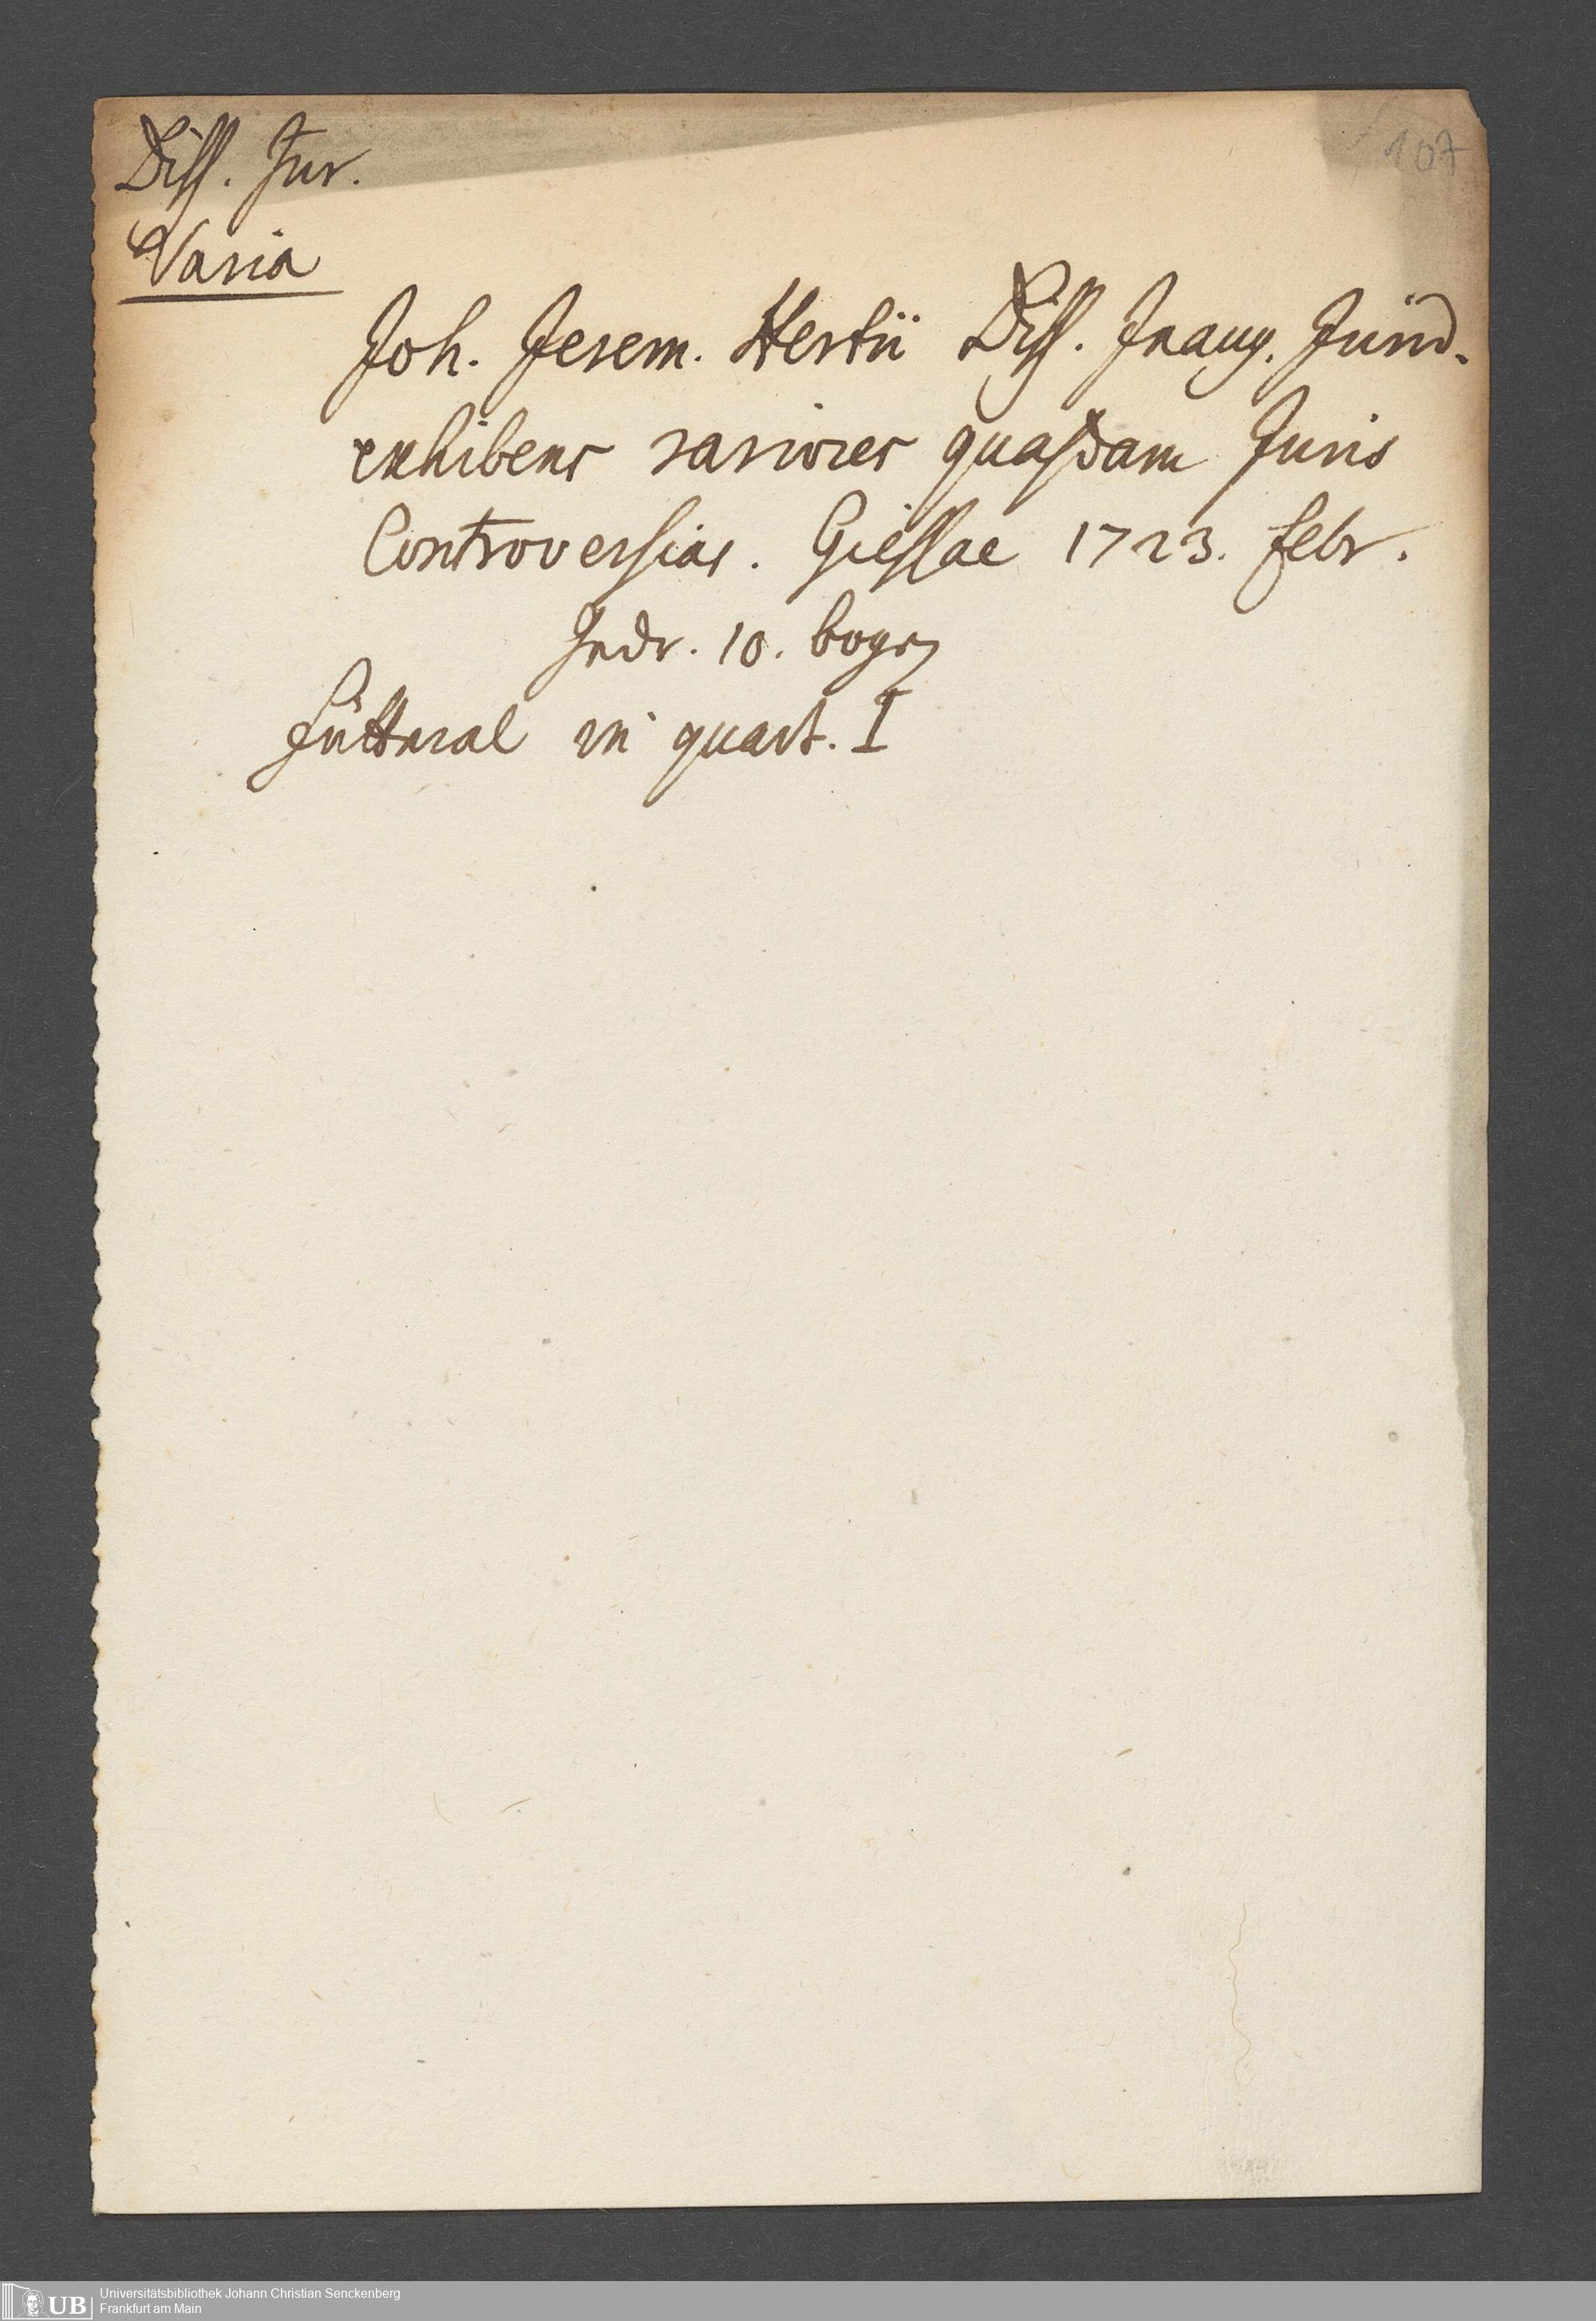 107
Diss. Jur.
Varia
Joh. Jerem. Hertii Diss. Inaug. Jurid.
exhibens rariores quasdam Juris
Controversias. Giessae 1723. febr.
10. bogen
Futteral in quart. I
UB Universitätsbibliothek Johann Christian Senckenberg
Frankfurt am Main